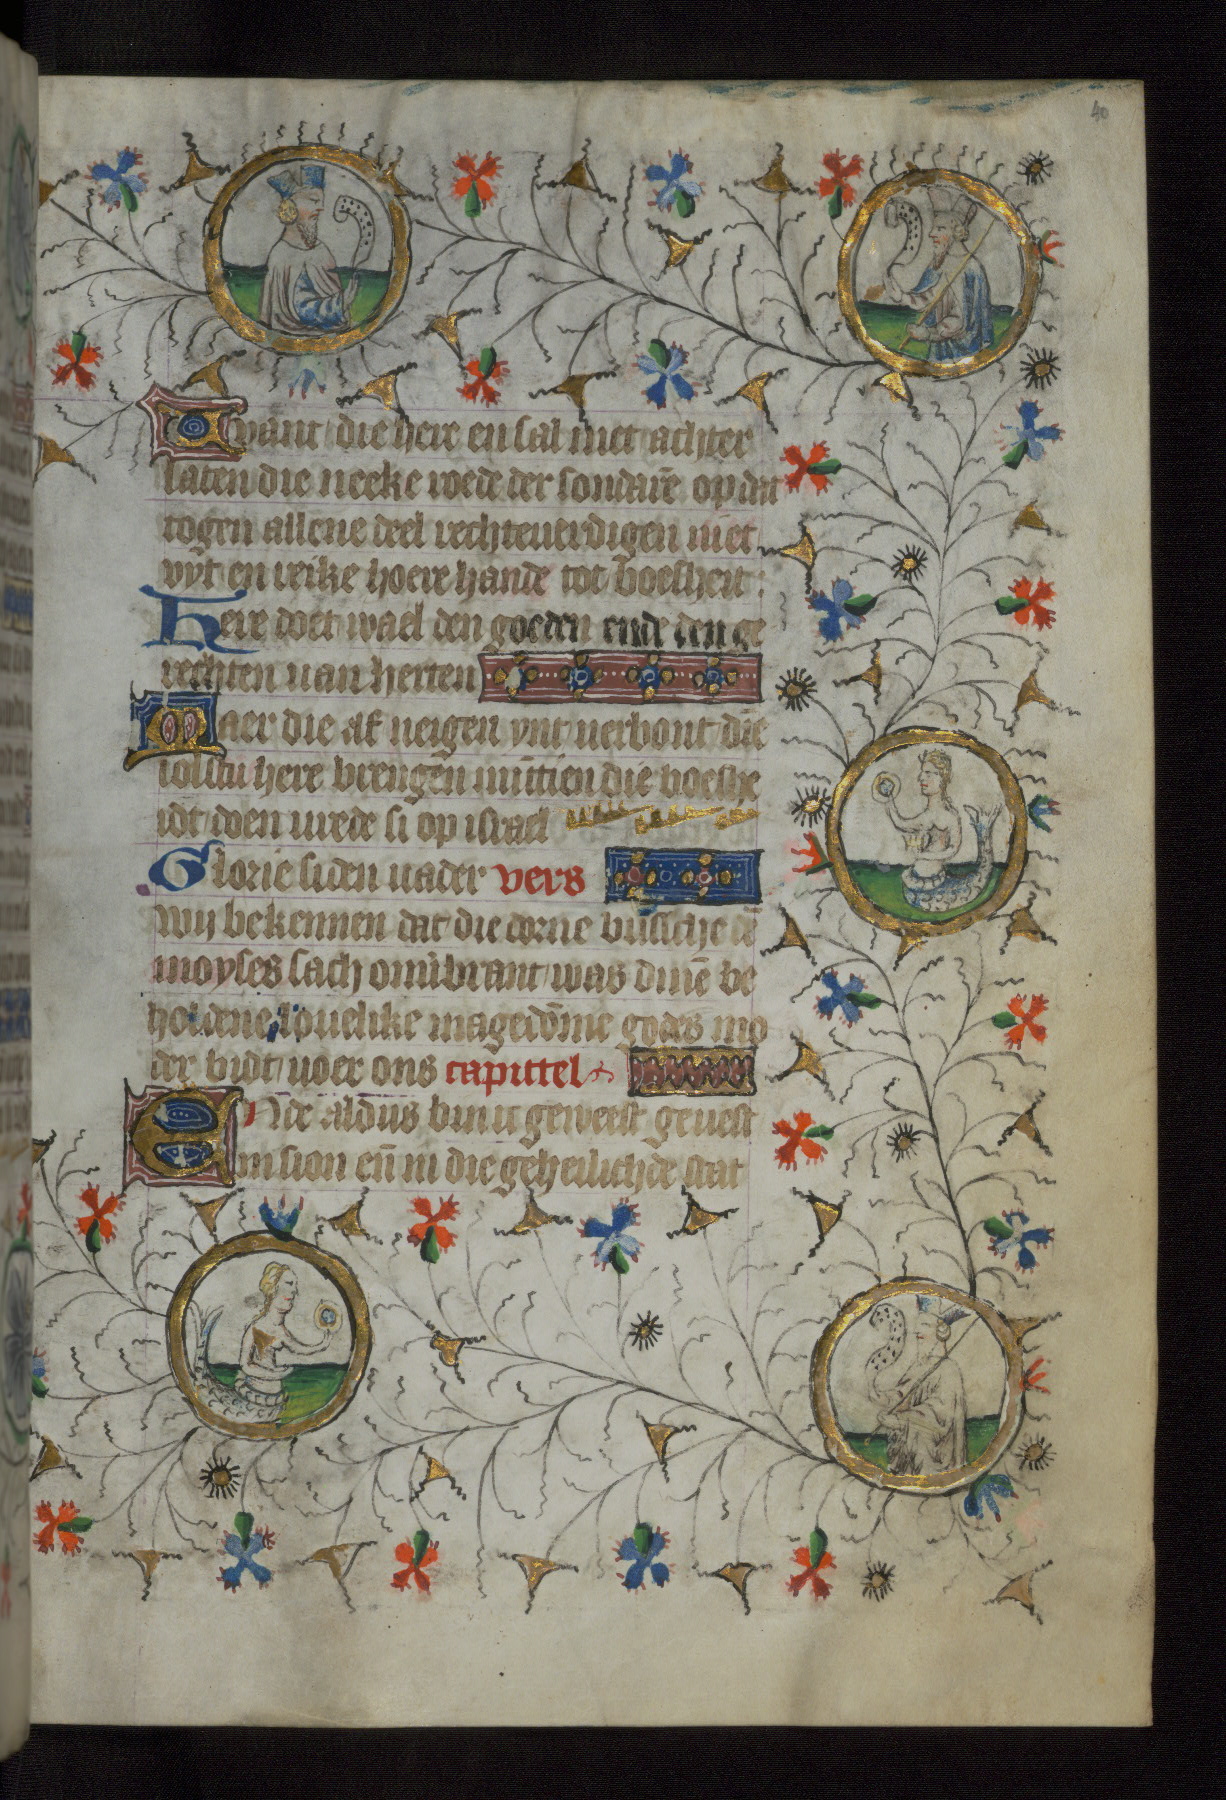 40
Want die here en sal niet achter
laten die neeke roede der sondarē op dat
togen allene deel rechteuerdigen niet
vyt en reike hoere hande tot boesheit:
Here doet wael den goeden ende den ge
rechten uan herten
Maer die af neigen ynt uerbont die
solstu here brengen mittien die boeshe
idt doen urede si op israel
Glorie si den uader vers
Wij bekennen dat die dorne bussche dē
moyses sach onūbrant was dinē be
holdene louelike magedōme gods mo
der bidt uoer ons capittel
Ende aldus bin ic geweest geuest
in sion eñ in die geheilichde stat